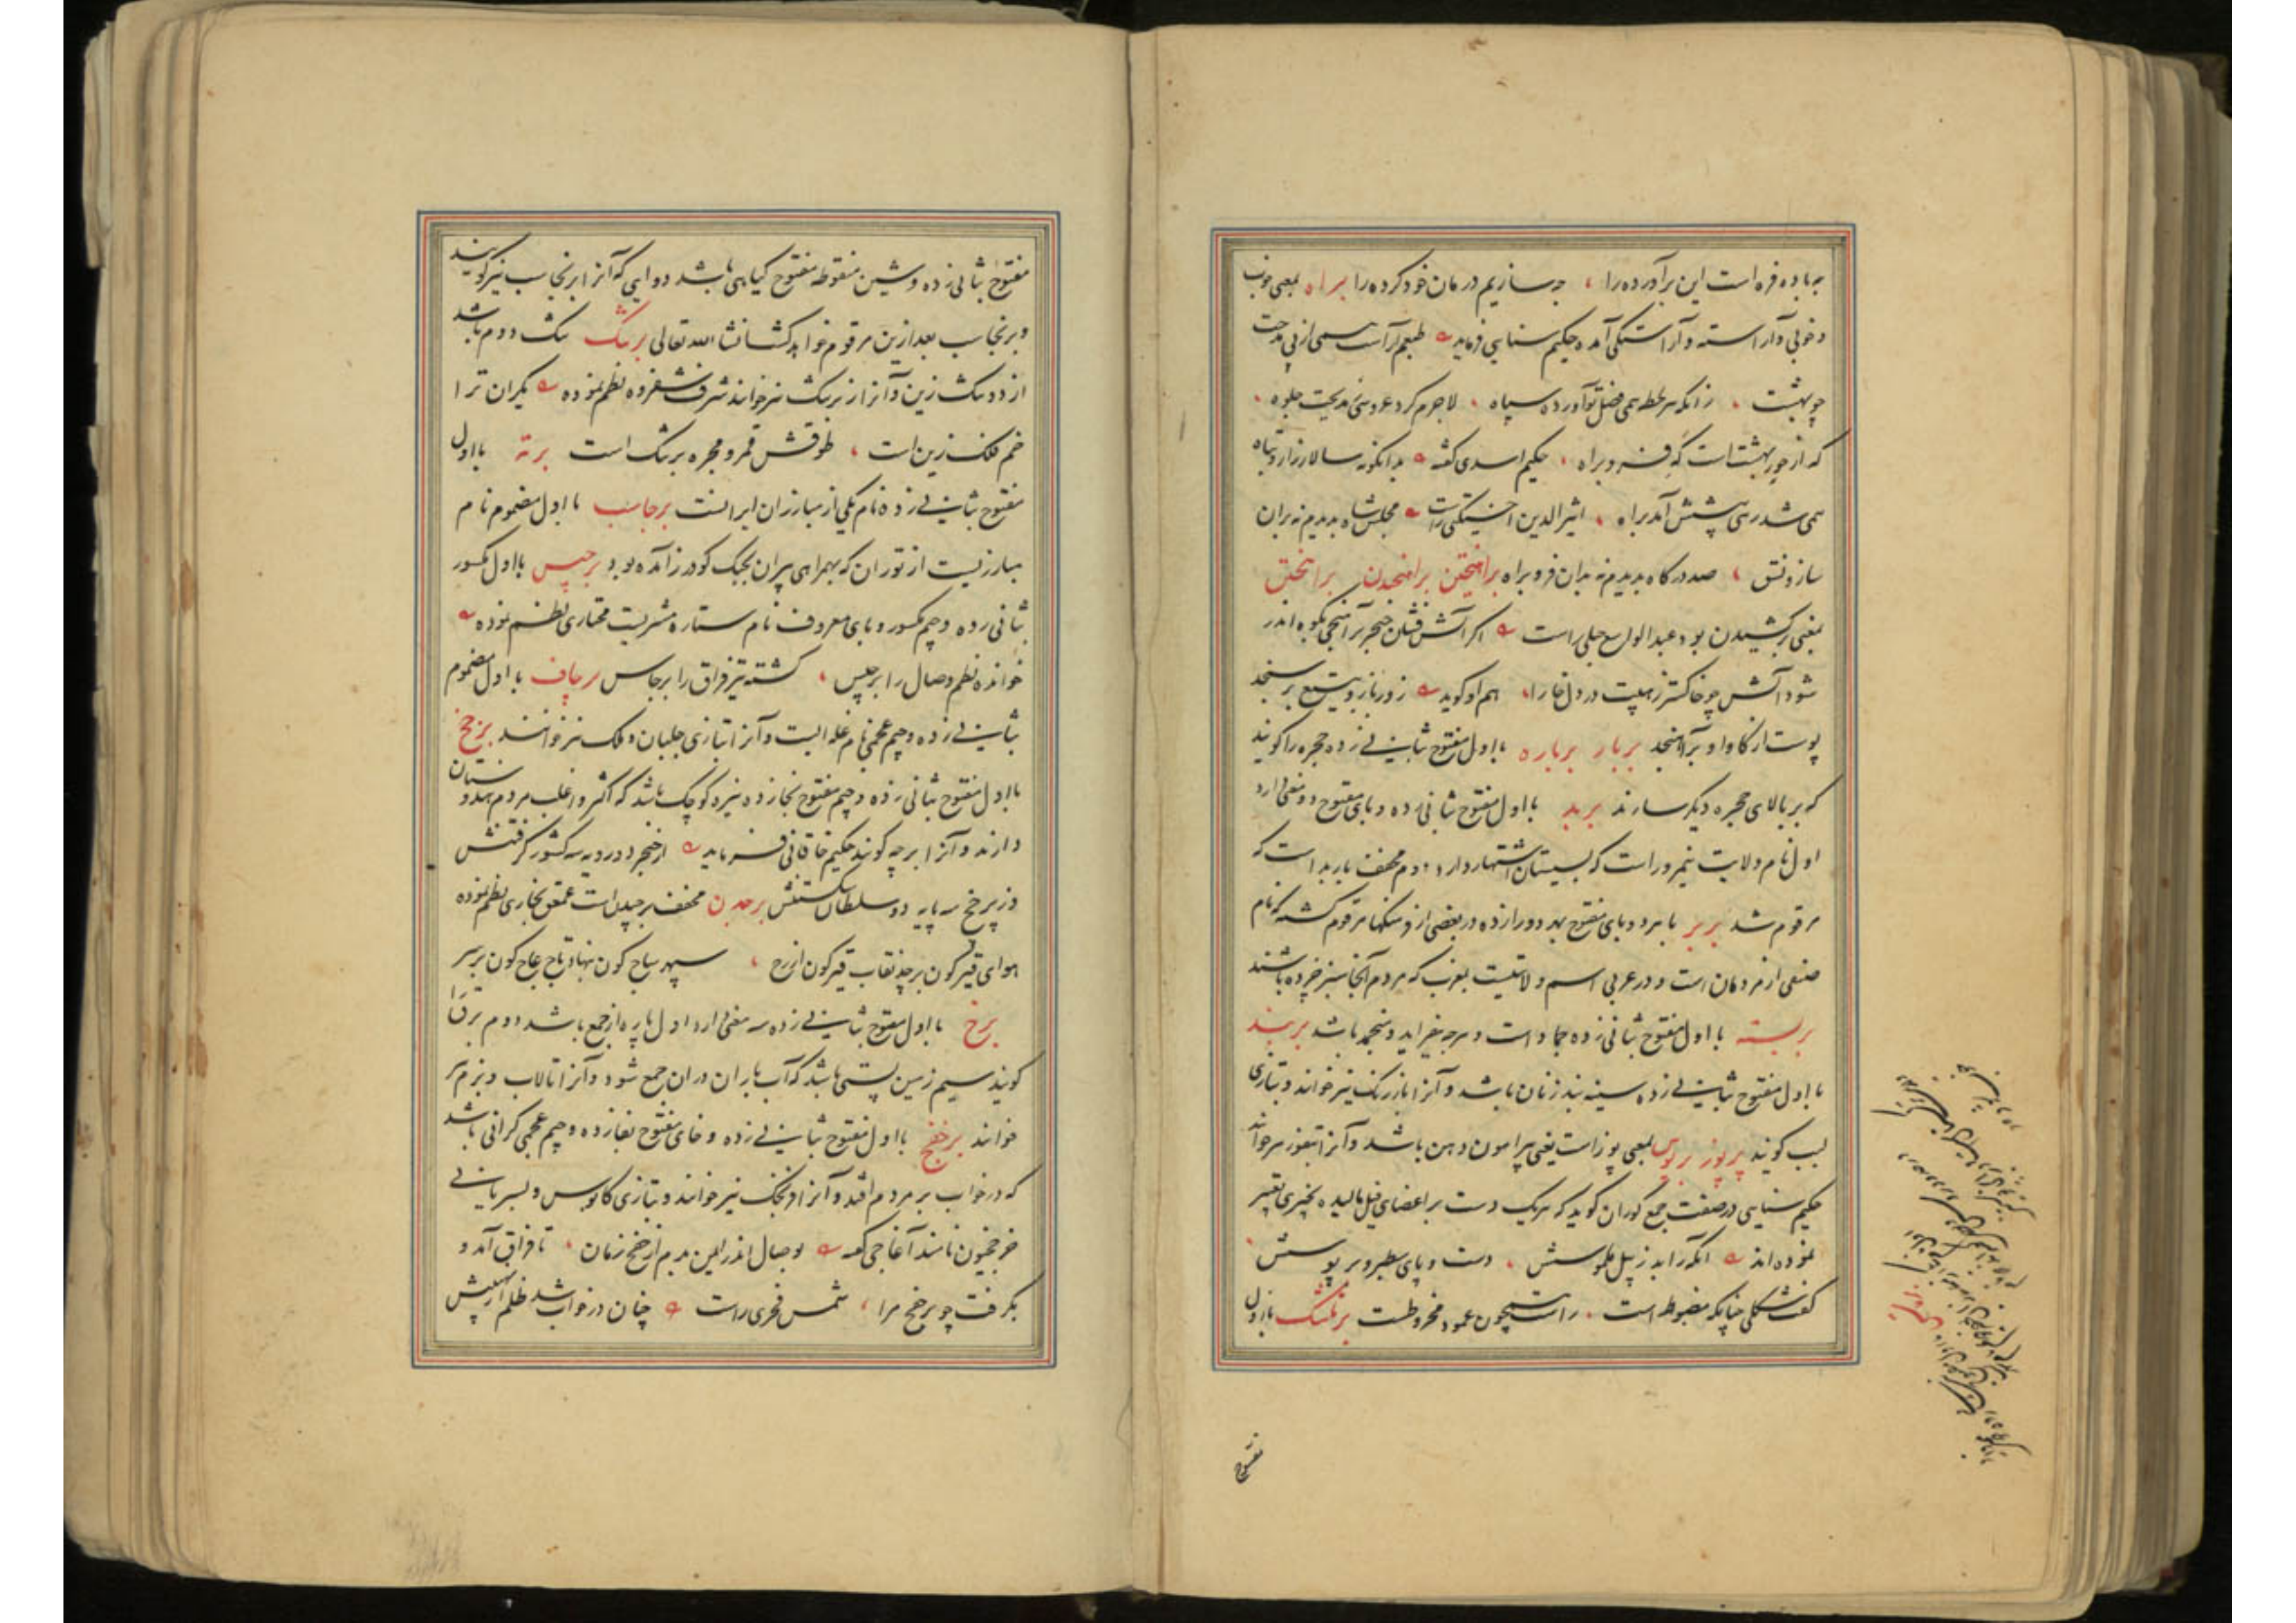 به باده فره است این برآورده را ، چه سازیم درمان خود کرده را براه بمعنی خوب
و خوبی و آراسته و آراستگی آمده حکیم سنایی فرماید طبعم آراست بسی از پی مدحت
چو بهشت ، زانکه هر لحظه همی فضل تو آورده سپاه ، لاجرم کرد عروسی مدیحت جلوه ،
که از حور بهشت است که فر و براه ، حکیم اسدی گفته بدانگونه سالار زار و تباه
همی شد رهی پیشش آمد براه ، اثیرالدین اخسیکتی راست مجلس شاه بدیدم نه بران
ساز و نسق ، صدر درگاه بدیدم نه بدان فر و براه براهیختن برانجیدن برانختن
بمعنی برکشیدن بود عبدالواسع جبلی راست اگر آتش فشان خنجر برآهنجی بکوه اندر
شود آتش چو خاکستر ز هیبت در دل خارا ، هم او گوید زور بازو و تیغ بر سنجد
پوست از گاو او برآهنجد بربار برباره با اول مفتوح بثانی زده حجره را گویند
که بر بالای حجره دیگر سازند بربد با اول مفتوح بثانی زده و بای مفتوح دو معنی دارد
اول نام ولایت نیمروز است که بسیستان اشتهار دارد دوم مخفف باربد است که
مرقوم شد بربر با هر دو بای مفتوح بهر دو را زده در بعضی از فرهنگها مرقوم گشته که نام
صنفی از مردمان است و در عربی اسم ولایتیست بمغرب که مردم آنجا سبز چرده باشند
بربسته با اول مفتوح بثانی زده جماد است و هرچه نیفزاید و منجمد باشد بربند
با اول مفتوح بثانی زده سینه بند زنان باشد و آنرا بازرنگ نیز خوانند و بتازی
لبب گویند برپوز برپوس بمعنی پوز است یعنی پیرامون دهن باشد و آنرا بتفوز نیز خوانند
حکیم سنایی در صفت جمع کوران گوید که هریک دست بر اعضای فیل مالیده بچیزی تعبیر
نموده اند آنکه را بد ز پیل ملموسش ، دست و پای سطبر و بر پوسش
گفت شکلی چنانکه مضبوط است ، راست همچون عمود مخروطست برتاشک با اول
مفتوح
مفتوح بثانی زده و شین منقوطه مفتوح گیاهی باشد دوایی که آنرا برنجاسب نیز گویند
و برنجاسب بعد ازین مرقوم خواهد گشت انشاالله تعالی برتنگ تنگ دوم باشد
از دو تنگ زین و آنرا زبرتنگ نیز خوانند شرف شفروه نظم نموده یکران ترا
خم فلک زین است ، طوقش قمر و مجره برتنگ است برته با اول
مفتوح بثانی زده نام یکی از مبارزان ایرانست برجاسب با اول مضموم نام
مبارزیست از توران که بهمراهی پیران بجنگ گودرز آمده بود برجیس با اول مکسور
بثانی زده و جیم مکسور و یای معروف نام ستاره مشتریست مختاری نظم نموده
خوانده نظم وصال را برجیس ، گشته تیر فراق را برجاس برچاف با اول مضموم
بثانی زده و جیم عجمی نام غله ایست و آنرا بتازی جلبان و ملک نیز خوانند برچخ
با اول مفتوح بثانی زده و جیم مفتوح بخا زده نیزه کوچک باشد که اکثر و اغلب مردم هندوستان
دارند و آنرا برچه گویند حکیم خاقانی فرماید از خنجر دو رویه سه کشور گرفتنش
وز برچخ سه پایه دو سلطان شکستنش برچدن مخفف برچیدن است عمعق بخاری نظم نموده
هوای قیرگون برچد نقاب قیرگون از رخ ، سپهر ساج گون بنهاد تاج عاج گون بر سر
برخ با اول مفتوح بثانی زده سه معنی دارد اول پاره از جمع باشد دوم برق را
گویند سیم زمین پستی باشد که آب باران در آن جمع شود و آنرا تالاب و بزم نیز
خوانند برخفج با اول مفتوح بثانی زده و خای مفتوح بفا زده و جیم عجمی گرانی باشد
که در خواب بر مردم افتد و آنرا فرنجک نیز خوانند و بتازی کابوس و بسریانی
خرخجیون نامند آغاجی گفته بوصال اندر ایمن بدم از خفج زمان ، تا فراق آمد و
بگرفت چو برخفج مرا ، شمس فخری راست چنان در خواب شد ظلم از نهیبش